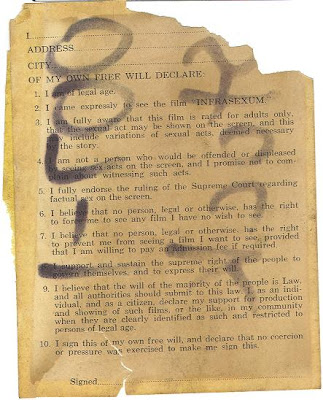 I
ADDRESS
CITY
OF MY OWN FREE WILL DECLARE:
1. I am of legal age.
2. I came expressly to see the film "INFRASEXUM."
3. I am fully aware that this film is rated for adults only,
that the sexual act may be shown on the screen, and this
include variations of sexual acts, deemed necessary
the story.
4. I am not a person who would be offended or displeased
seeing sex acts on the screen, and I promise not to com-
plain about witnessing such acts.
5. I fully endorse the ruling of the Supreme Court regarding
factual sex on the screen.
6. I believe that no person, legal or otherwise, has the right
to force me to see any film I have no wish to see.
7. I believe that no person, legal or otherwise, has the right
to prevent me from seeing a film I want to see, provided
that I am willing to pay a admission fee if required.
8. I support and sustain the supreme right of the people to
govern themselves, and to express their will.
9. I believe that the will of the majority of the people is Law,
and all authorities should submit to this law I, as an indi-
vidual, and as a citizen, declare my support for production
and showing of such films, or the like, in my community
when they are clearly identified as such and restricted to
persons of legal age.
10. I sign this of my own free will, and declare that no coercion
or pressure was exercised to make me sign this.
Signed